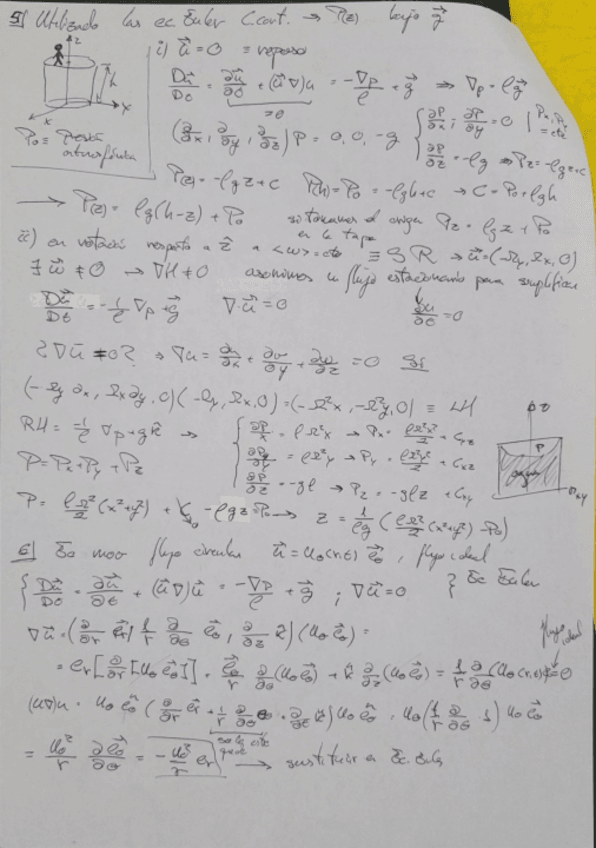 5] Utilizando las ec Euler C cont. → P(z) bajo g⃗
z
h
x
x
P₀ ≡ Presión atmosférica
i) u⃗ = 0 ≡ reposo
Du⃗/Dt = ∂u⃗/∂t + (u⃗∇)u = -∇p/ρ + g⃗ ⇒ ∇p = ρg⃗
=0
(∂/∂x, ∂/∂y, ∂/∂z) P = 0, 0, -g
{ ∂P/∂x ; ∂P/∂y = 0 | Px, Py = cte
∂P/∂z = -ρg ⇒ Pz = -ρgz+c
P(z) = -ρgz+c P(h)=P₀ = -ρgh+c → C = P₀+ρgh
→ P(z) = ρg(h-z) + P₀ situamos el origen en la tapa Pz = ρgz + P₀
ii) en rotació respecto a ẑ a <w>=cte ≡ ΩR → u⃗=(-Ωy, Ωx, 0)
∃ w⃗ ≠ 0 → ∇H ≠ 0 asumimos un flujo estacionario para simplificar
Du⃗/Dt = -1/ρ ∇p + g⃗ ∇·u⃗ = 0 ∂u/∂t = 0
¿∇u⃗ = 0? ⇒ ∇u = ∂u/∂x + ∂v/∂y + ∂w/∂z = 0 Sí
(-Ωy ∂x, Ωx ∂y, 0)(-Ωy, Ωx, 0) = (-Ω²x, -Ω²y, 0) ≡ LH
RH = -1/ρ ∇p + gk̂ ⇒ { ∂P/∂x = ρΩ²x → Px = ρΩ²x²/2 + Cyz
P = Px + Py + Pz ∂P/∂y = ρΩ²y → Py = ρΩ²y²/2 + Cxz
∂P/∂z = -gρ → Pz = -gρz + Cxy
P = ρΩ²/2 (x²+y²) + C - ρgz = P₀ → z = 1/ρg (ρΩ²/2 (x²+y²) - P₀)
z
P
xy
6] Ec mov flujo circular u⃗ = u_θ(r,t) e⃗_θ, flujo ideal
{ Du⃗/Dt = ∂u⃗/∂t + (u⃗∇)u⃗ = -∇p/ρ + g⃗ ; ∇u⃗ = 0 } Ec Euler
∇u⃗ = (∂/∂r e⃗r, 1/r ∂/∂θ e⃗_θ, ∂/∂z k̂)(u_θ e⃗_θ) =
flujo ideal
= e_r[∂/∂r [u_θ e⃗_θ]] + e⃗_θ/r ∂/∂θ (u_θ e⃗_θ) + k̂ ∂/∂z (u_θ e⃗_θ) = 1/r ∂/∂θ (u_θ(r,t)) = 0
(u∇)u = u_θ e⃗_θ (∂/∂r e⃗r + 1/r ∂/∂θ e_θ + ∂/∂z k̂) u_θ e⃗_θ = u_θ (1/r ∂/∂θ · 1) u_θ e⃗_θ
solo este
= u_θ²/r ∂e⃗_θ/∂θ = -u_θ²/r e_r → sustituir en Ec. Euler